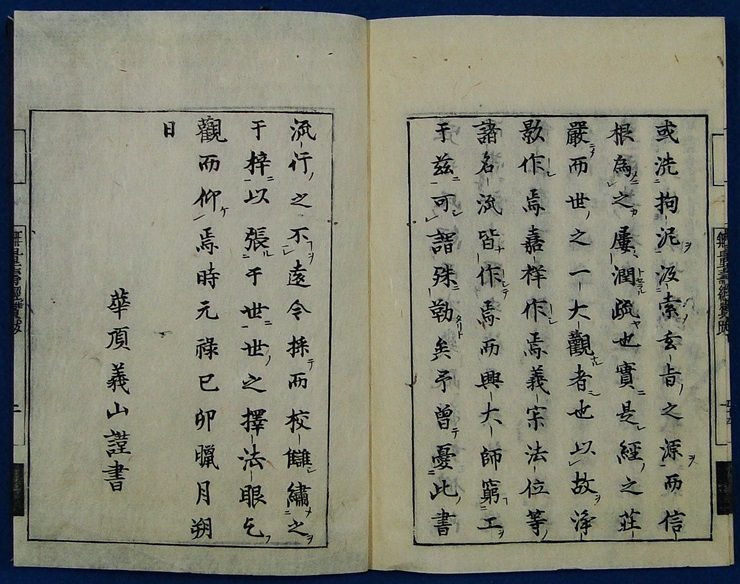 或洗拘泥汲索玄旨之源而信
根為之屢潤疏也實是經之莊
嚴而世之一大觀者也以故淨
影作焉嘉祥作焉義宗法位等
諸名流皆作焉而興大師窮工
于茲可謂殊勤矣予曾憂此書
流行之不遠令採而校讎繡之
于梓以張于世世之擇法眼乞
觀而仰焉時元祿己卯臘月朔
日
華頂義山謹書